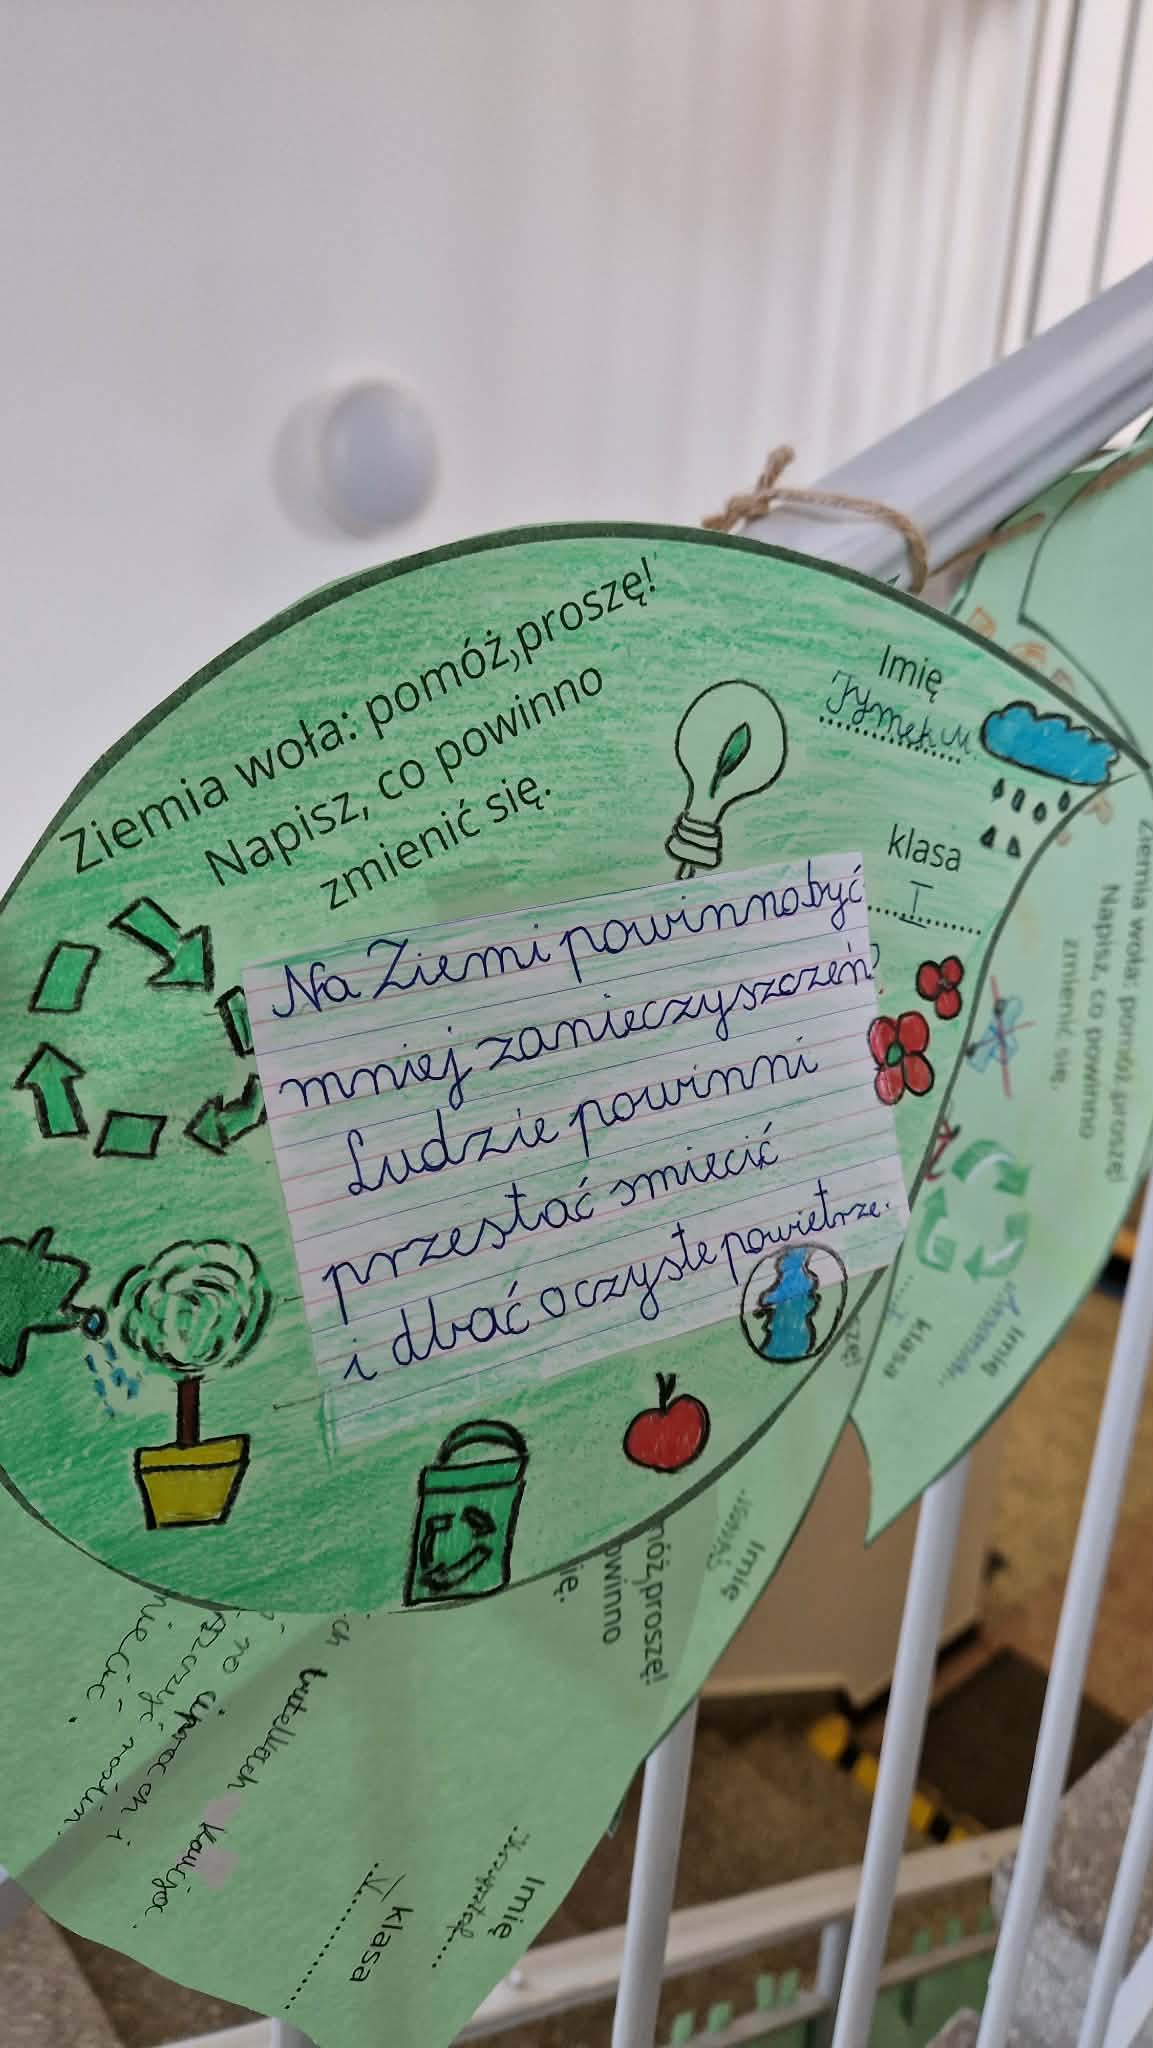 Ziemia woła: pomóż,proszę!
Napisz, co powinno
zmienić się.
Imię
Tymek M.
klasa
I
Na Ziemi powinno być
mniej zanieczyszczeń.
Ludzie powinni
przestać smiecić
i dbać o czyste powietrze.
Ziemia woła: pomóż,proszę!
Napisz, co powinno
zmienić się.
Imię
klasa
czę!
móż,proszę!
owinno
ię.
Imię
ch butelkach
Imię
Krzysztof
klasa
V